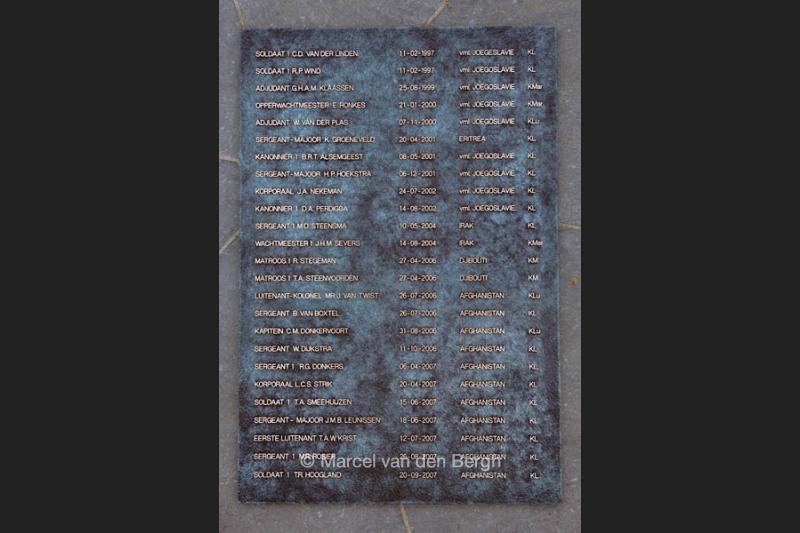 SOLDAAT 1 C.D. VAN DER LINDEN 11-02-1997 vml. JOEGOSLAVIE KL
SOLDAAT 1 R.P. WIND 11-02-1997 vml. JOEGOSLAVIE KL
ADJUDANT G.H.A.M. KLAASSEN 25-08-1999 vml. JOEGOSLAVIE KMar
OPPERWACHTMEESTER E. RONKES 21-01-2000 vml. JOEGOSLAVIE KMar
ADJUDANT W. VAN DER PLAS 07-11-2000 vml. JOEGOSLAVIE KLu
SERGEANT-MAJOOR K. GROENEVELD 20-04-2001 ERITREA KL
KANONNIER 1 B.R.T. ALSEMGEEST 08-05-2001 vml. JOEGOSLAVIE KL
SERGEANT-MAJOOR H.P. HOEKSTRA 06-12-2001 vml. JOEGOSLAVIE KL
KORPORAAL J.A. NEKEMAN 24-07-2002 vml. JOEGOSLAVIE KL
KANONNIER 1 D.A. PERDIGOA 14-08-2002 vml. JOEGOSLAVIE KL
SERGEANT 1 M.D. STEENSMA 10-05-2004 IRAK KL
WACHTMEESTER 1 J.H.M. SEVERS 14-08-2004 IRAK KMar
MATROOS 1 R. STEGEMAN 27-04-2006 DJIBOUTI KM
MATROOS 1 T.A. STEENVOORDEN 27-04-2006 DJIBOUTI KM
LUITENANT-KOLONEL MR. J. VAN TWIST 26-07-2006 AFGHANISTAN KLu
SERGEANT B. VAN BOXTEL 26-07-2006 AFGHANISTAN KL
KAPITEIN C.M. DONKERVOORT 31-08-2006 AFGHANISTAN KLu
SERGEANT W. DIJKSTRA 11-10-2006 AFGHANISTAN KL
SERGEANT 1 R.G. DONKERS 06-04-2007 AFGHANISTAN KL
KORPORAAL L.C.S. STRIK 20-04-2007 AFGHANISTAN KL
SOLDAAT 1 T.A. SMEEHUIJZEN 15-06-2007 AFGHANISTAN KL
SERGEANT-MAJOOR J.M.B. LEUNISSEN 18-06-2007 AFGHANISTAN KL
EERSTE LUITENANT T.A.W. KRIST 12-07-2007 AFGHANISTAN KL
SERGEANT 1 M.R. ROSIER 26-08-2007 AFGHANISTAN KL
© Marcel van den Bergh
SOLDAAT 1 T.R. HOOGLAND 20-09-2007 AFGHANISTAN KL